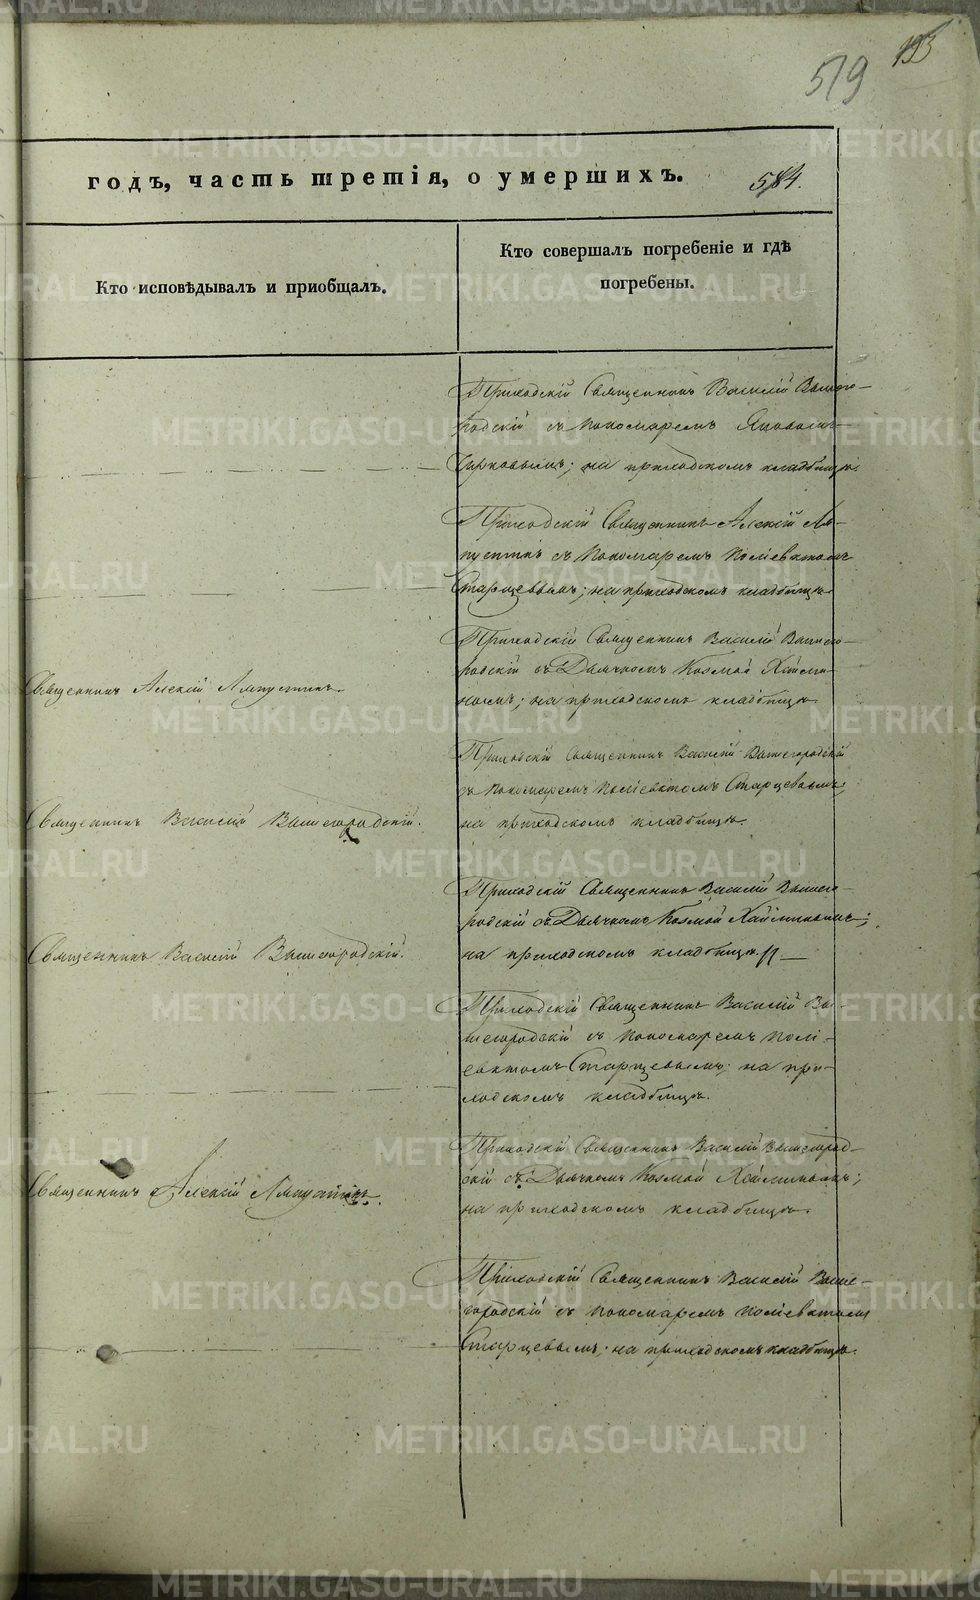 193
519
годъ, часть третія, о умершихъ. 584.
Кто исповѣдывалъ и приобщалъ.
Кто совершалъ погребеніе и гдѣ
погребены.
Приходскій Священникъ Василій Вышего-
родскій съ пономаремъ
на приходскомъ кладбищѣ.
Приходскій Священникъ Алексій Ла-
пустинъ съ пономаремъ Поліевктомъ
Старцевымъ; на приходскомъ кладбищѣ.
Приходскій Священникъ Василій Вышего-
родскій съ Дьячкомъ Козмой Хайми-
нымъ; на приходскомъ кладбищѣ.
Священникъ Алексій Лапустинъ.
Приходскій Священникъ Василій Вышегородскій
съ пономаремъ Поліевктомъ Старцевымъ;
на приходскомъ кладбищѣ.
Священникъ Василій Вышегородскій.
Приходскій Священникъ Василій Вышего-
родскій съ Дьячкомъ Козмой Хайминымъ;
на приходскомъ кладбищѣ.
Священникъ Василій Вышегородскій.
Приходскій Священникъ Василій Вы-
шегородскій съ пономаремъ Полі-
евктомъ Старцевымъ; на при-
ходскомъ кладбищѣ.
Приходскій Священникъ Василій Вышегород-
скій съ Дьячкомъ Козмой Хайминымъ;
на приходскомъ кладбищѣ.
Священникъ Алексій Лапустинъ.
Приходскій Священникъ Василій Выше-
городскій съ пономаремъ Поліевктомъ
Старцевымъ; на приходскомъ кладбищѣ.
METRIKI.GASO-URAL.RU